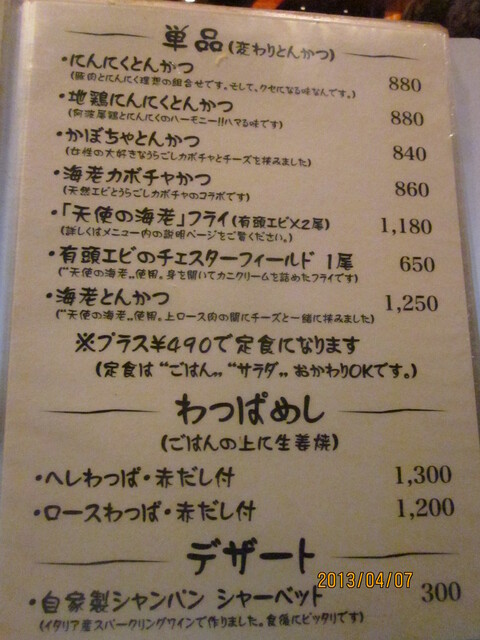 単品(変わりとんかつ)
・にんにくとんかつ 880
(豚肉とにんにく理想の組合せです。そして、クセになる味なんです。)
・地鶏にんにくとんかつ 880
(阿波尾鶏とにんにくのハーモニー!!ハマる味です)
・かぼちゃとんかつ 840
(女性の大好きなうらごしカボチャとチーズを挟みました)
・海老カボチャかつ 860
(天然エビとうらごしカボチャのコラボです)
・「天使の海老」フライ(有頭エビ×2尾) 1,180
(詳しくはメニュー内の説明ページをご覧ください。)
・有頭エビのチェスターフィールド 1尾 650
(〝天使の海老〟使用。身を開いてカニクリームを詰めたフライです)
・海老とんかつ 1,250
(〝天使の海老〟使用。上ロース肉の間にチーズと一緒に挟みました)
※プラス¥490で定食になります
(定食は〝ごはん〟〝サラダ〟おかわりOKです。)
わっぱめし
(ごはんの上に生姜焼)
・ヘレわっぱ・赤だし付 1,300
・ロースわっぱ・赤だし付 1,200
デザート
・自家製シャンパン シャーベット 300
(イタリア産スパークリングワインで作りました。食後にピッタリです)
2013/04/07